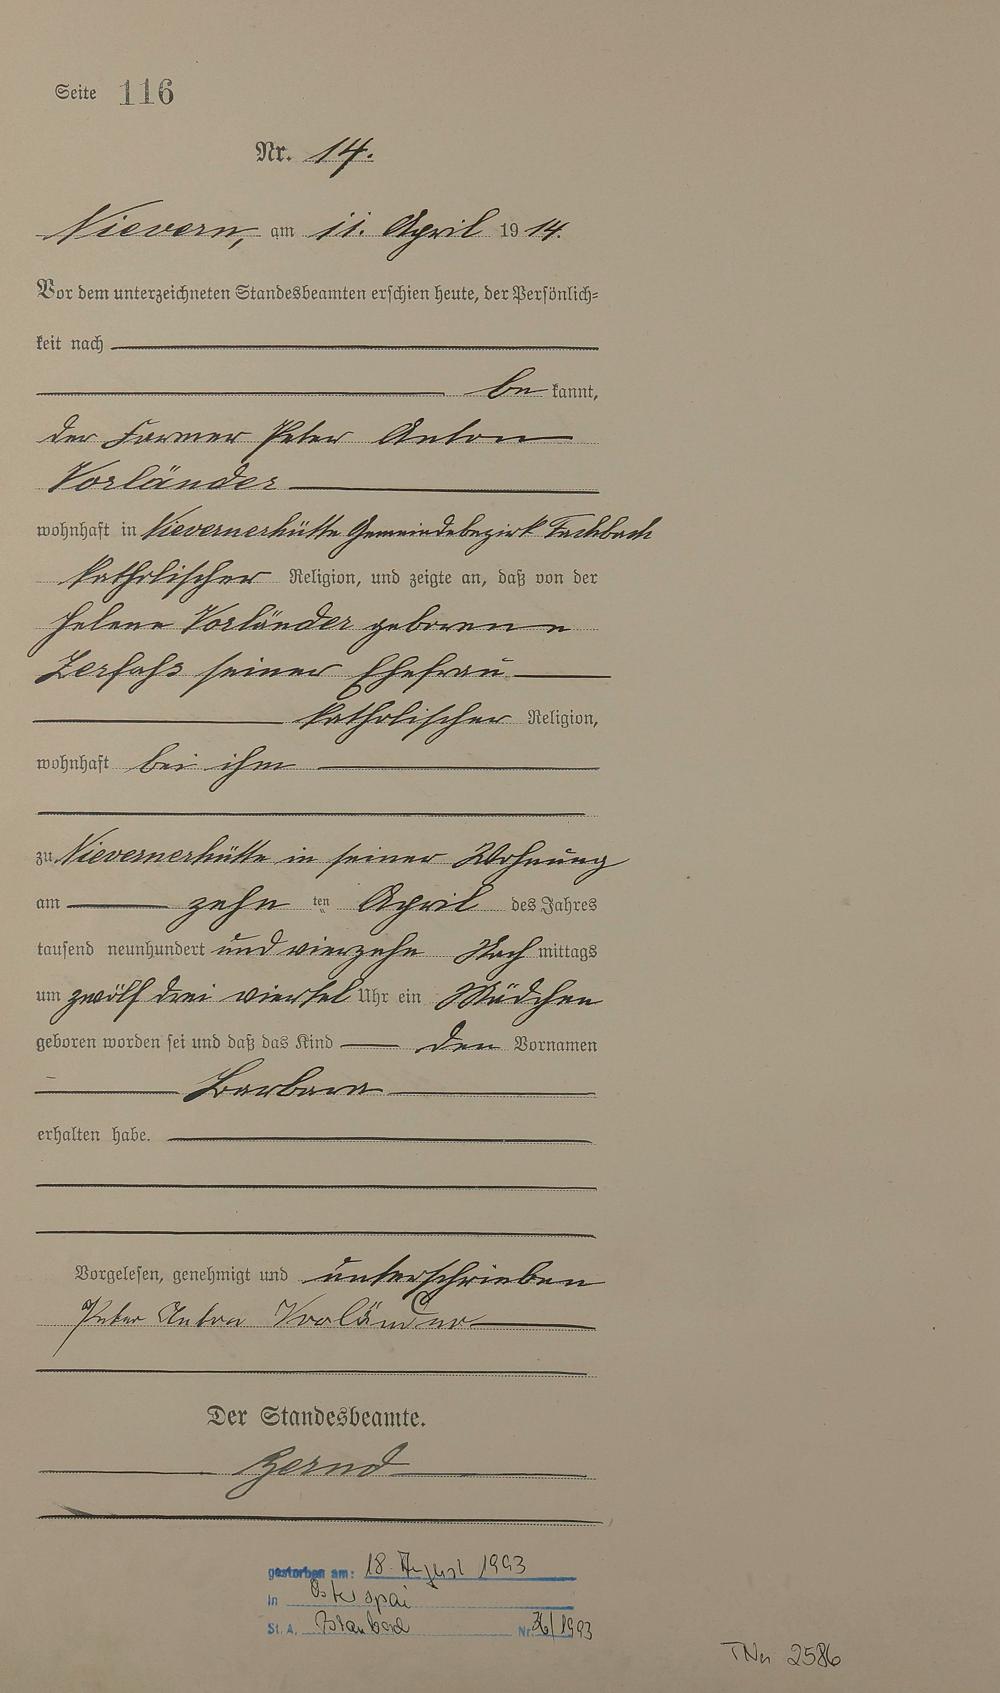 Seite 116
Nr. 14.
Nievern, am 11. April 1914.
Vor dem unterzeichneten Standesbeamten erschien heute, der Persönlich=
keit nach
be kannt,
der Former Peter Anton
Vorländer
wohnhaft in Nievernerhütte Gemeindebezirk Fachbach
katholischer Religion, und zeigte an, daß von der
Helene Vorländer geborene
Zerfaß seiner Ehefrau
katholischer Religion,
wohnhaft bei ihm
zu Nievernerhütte in seiner Wohnung
am zehn ten April des Jahres
tausend neunhundert und vierzehn Nach mittags
um zwölf drei viertel Uhr ein Mädchen
geboren worden sei und daß das Kind den Vornamen
Barbara
erhalten habe.
Vorgelesen, genehmigt und unterschrieben
Peter Anton Vorländer
Der Standesbeamte.
gestorben am: 18. August 1993
in Osterspai
St. A. Braubach Nr. 36/1993
TNr 2586